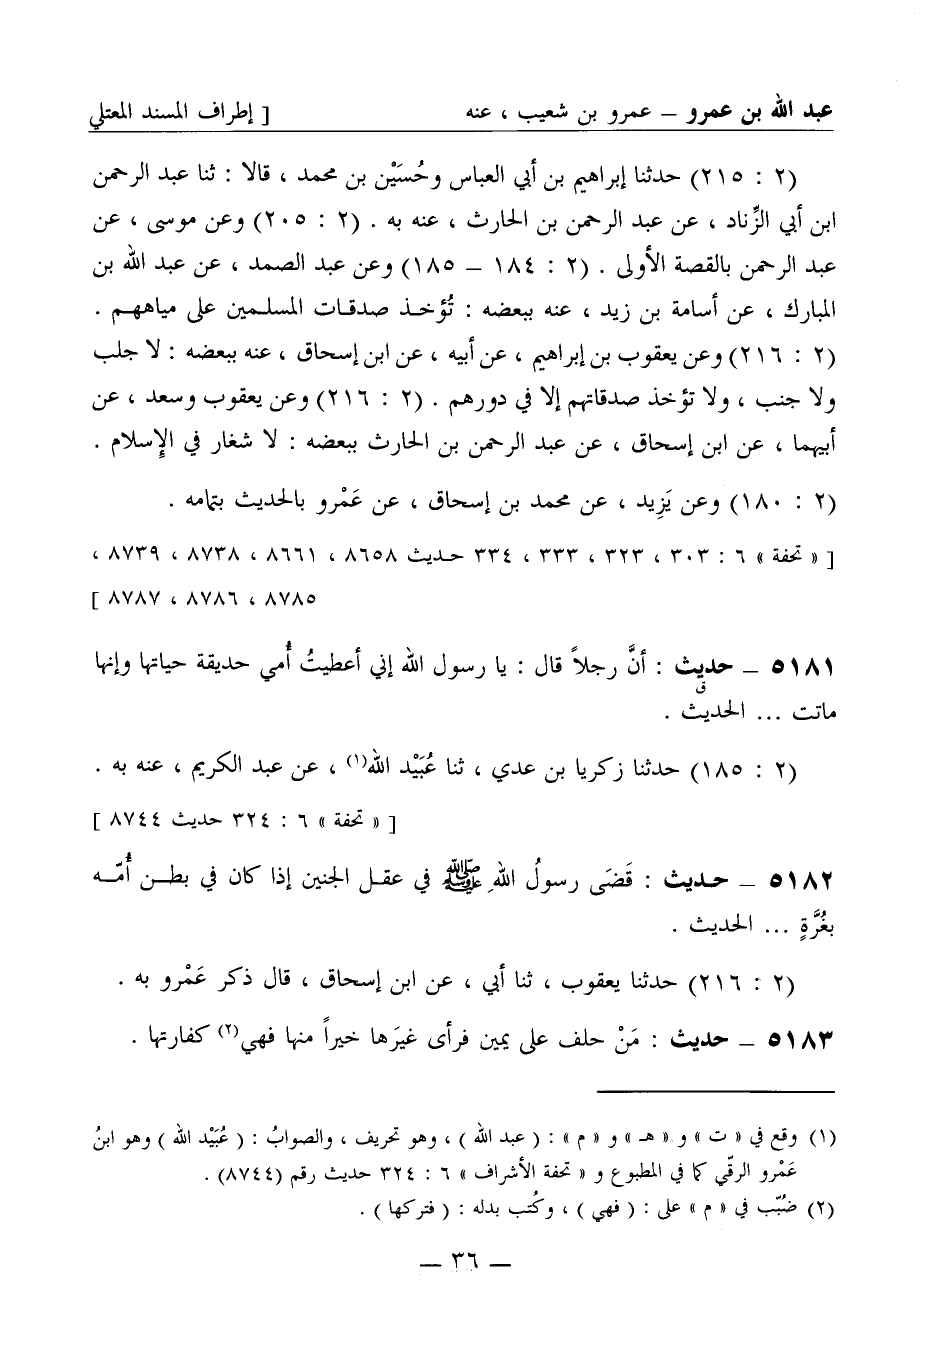 عبد الله بن عمرو – عمرو بن شعيب ، عنه [ إطراف المسند المعتلي
(٢ : ٢١٥) حدثنا إبراهيم بن أبي العباس وحُسَيْن بن محمد ، قالا : ثنا عبد الرحمن
ابن أبي الزِّناد ، عن عبد الرحمن بن الحارث ، عنه به . (٢ : ٢٠٥) وعن موسى ، عن
عبد الرحمن بالقصة الأولى . (٢ : ١٨٤ – ١٨٥) وعن عبد الصمد ، عن عبد الله بن
المبارك ، عن أسامة بن زيد ، عنه ببعضه : تُؤخذ صدقات المسلمين على مياههم .
(٢ : ٢١٦) وعن يعقوب بن إبراهيم ، عن أبيه ، عن ابن إسحاق ، عنه ببعضه : لا جلب
ولا جنب ، ولا تؤخذ صدقاتهم إلا في دورهم . (٢ : ٢١٦) وعن يعقوب وسعد ، عن
أبيهما ، عن ابن إسحاق ، عن عبد الرحمن بن الحارث ببعضه : لا شغار في الإسلام .
(٢ : ١٨٠) وعن يَزِيد ، عن محمد بن إسحاق ، عن عَمْرو بالحديث بتمامه .
[ « تحفة » ٦ : ٣٠٣ ، ٣٢٣ ، ٣٣٣ ، ٣٣٤ حديث ٨٦٥٨ ، ٨٦٦١ ، ٨٧٣٨ ، ٨٧٣٩ ،
٨٧٨٥ ، ٨٧٨٦ ، ٨٧٨٧ ]
٥١٨١ – حديث : أنَّ رجلاً قال : يا رسول الله إني أعطيتُ أُمي حديقة حياتها وإنها
ق
ماتت ... الحديث .
(٢ : ١٨٥) حدثنا زكريا بن عدي ، ثنا عُبَيْد الله(١) ، عن عبد الكريم ، عنه به .
[ « تحفة » ٦ : ٣٢٤ حديث ٨٧٤٤ ]
٥١٨٢ – حديث : قَضَى رسولُ اللهِ ﷺ في عقل الجنين إذا كان في بطن أُمّه
بغُرَّةٍ ... الحديث .
(٢ : ٢١٦) حدثنا يعقوب ، ثنا أبي ، عن ابن إسحاق ، قال ذكر عَمْرو به .
٥١٨٣ – حديث : مَنْ حلف على يمين فرأى غيرَها خيراً منها فهي(٢) كفارتها .
(١) وقع في « ت » و « هـ » و « م » : ( عبد الله ) ، وهو تحريف ، والصوابُ : ( عُبَيْد الله ) وهو ابنُ
عَمْرو الرقّي كما في المطبوع و « تحفة الأشراف » ٦ : ٣٢٤ حديث رقم (٨٧٤٤) .
(٢) ضُبّب في « م » على : ( فهي ) ، وكُتب بدله : ( فتركها ) .
– ٣٦ –